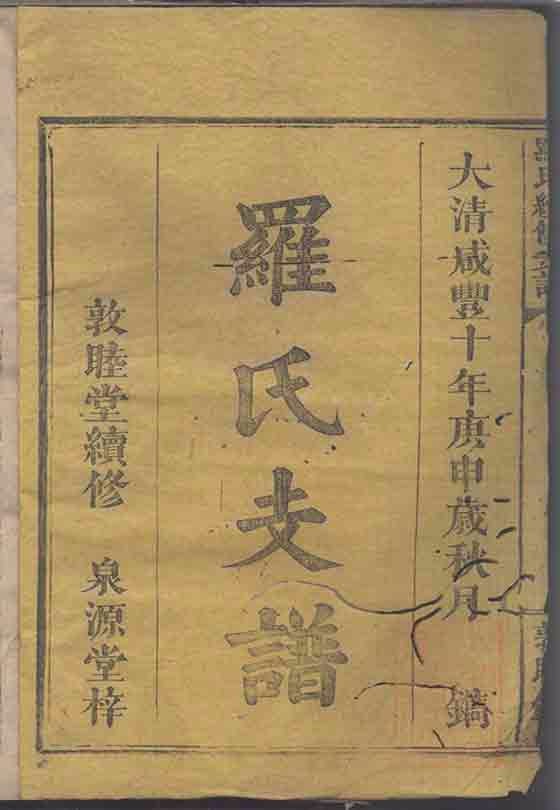 羅氏續修支譜
大清咸豐十年庚申歲秋月 鐫
羅氏支譜
敦睦堂續修 泉源堂梓